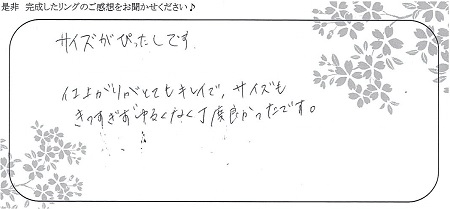 是非 完成したリングのご感想をお聞かせください♪
サイズがぴったしです。
仕上がりがとてもキレイで、サイズも
きつすぎず ゆるくなく丁度良かったです。